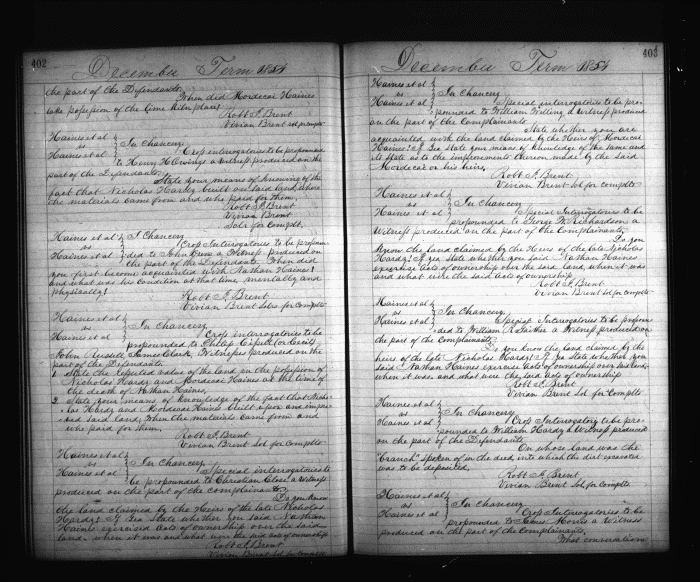 402
December Term 1854
the part of the Defendants.
When did Mordecai Haines
take possession of the lime kiln place?
Robt J. Brent
Vivian Brent
Haines et al
vs
Haines et al
In Chancery
Crop interrogatories to be propounded
to Henry H Owings a Witness produced on the
part of the Defendants.
State your means of knowing of the
fact that Nicholas Hardy built on said land, where
the materials came from and who paid for them.
Robt J. Brent
Vivian Brent
Solr for Complt.
Haines et al
vs
Haines et al
I Chancery
Crop Interrogatories to be propoun-
ded to John a Witness produced on
the part of the Defendants. When did
you first become acquainted with Nathan Haines?
and what was his condition at that time mentally and
physically?
Robt J. Brent
Vivian Brent Solrs for Complts
Haines et al
vs
Haines et al
In Chancery
Crop interrogatories to be
propounded to Philip
John Russell James Clark, Witnesses produced on the
part of the Defendants.
State the reputed value of the land in the possession of
Nicholas Hardy and Mordecai Haines at the time of
the death of Nathan Haines.
2. State your means of knowledge of the fact that Nicho-
las Hardy and Mordecai Haines built upon and impro-
ved said land, when the materials came from and
who paid for them.
Robt J Brent
Vivian Brent Sol for Complts
Haines et al
vs
Haines et al
In Chancery
Special interrogatories to
be propounded to Christian a Witness
produced on the part of the complainants
Do you know
the land claimed by the Heirs of the late Nicholas
Hardy? If yea State whether you said Nathan
Haines exercised acts of ownership over the said
land. when it was and what were the said acts of ownership
Robt J Brent
Vivian Brent Sol for Complts
403
December Term 1854
Haines et al
vs
Haines et al
In Chancery
Special interrogatories to be pro-
pounded to William Willing a Witness produced
on the part of the Complainants
State whether you are
acquainted with the land claimed by the Heirs of Mordecai
Haines? If Yea State your means of knowledge of the same and
its state as to the improvements thereon made by the said
Mordecai or his heirs.
Robt J. Brent
Vivian Brent Sol for Complts
Haines et al
vs
Haines et al
In Chancery
Special Interrogatories to be
propounded to George W Richardson a
Witness produced on the part of the Complainants,
Do you
Know the land claimed by the Heirs of the late Nicholas
Hardy? If yea State whether you said Nathan Haines
exercise acts of ownership over the said land, when it was and
and what were the said acts of ownership
Robt J. Brent
Vivian Brent Sol for Complts
Haines et al
vs
Haines et al
In Chancery
Special Interrogatories to be propoun-
ded to William a Witness produced on
the part of the Complainants
Do you know the land claimed by the
heirs of the late Nicholas Hardy? If yea State whether you
said Nathan Haines exercise acts of ownership over said land,
when it was and what were the said acts of ownership
Robt J. Brent
Vivian Brent Sol for Complts
Haines et al
vs
Haines et al
In Chancery
Crop Interrogatory to be pro-
pounded to William Hardy a Witness produced
on the part of the Defendants
On whose land was the
branch spoken of in the deed, into which the dirt excavated
was to be deposited,
Robt J. Brent
Vivian Brent Sol for Complts
Haines et al
vs
Haines et al
In Chancery
Crop Interrogatories to be
propounded to James Morris a Witness
produced on the part of the Complainants,
What conversation